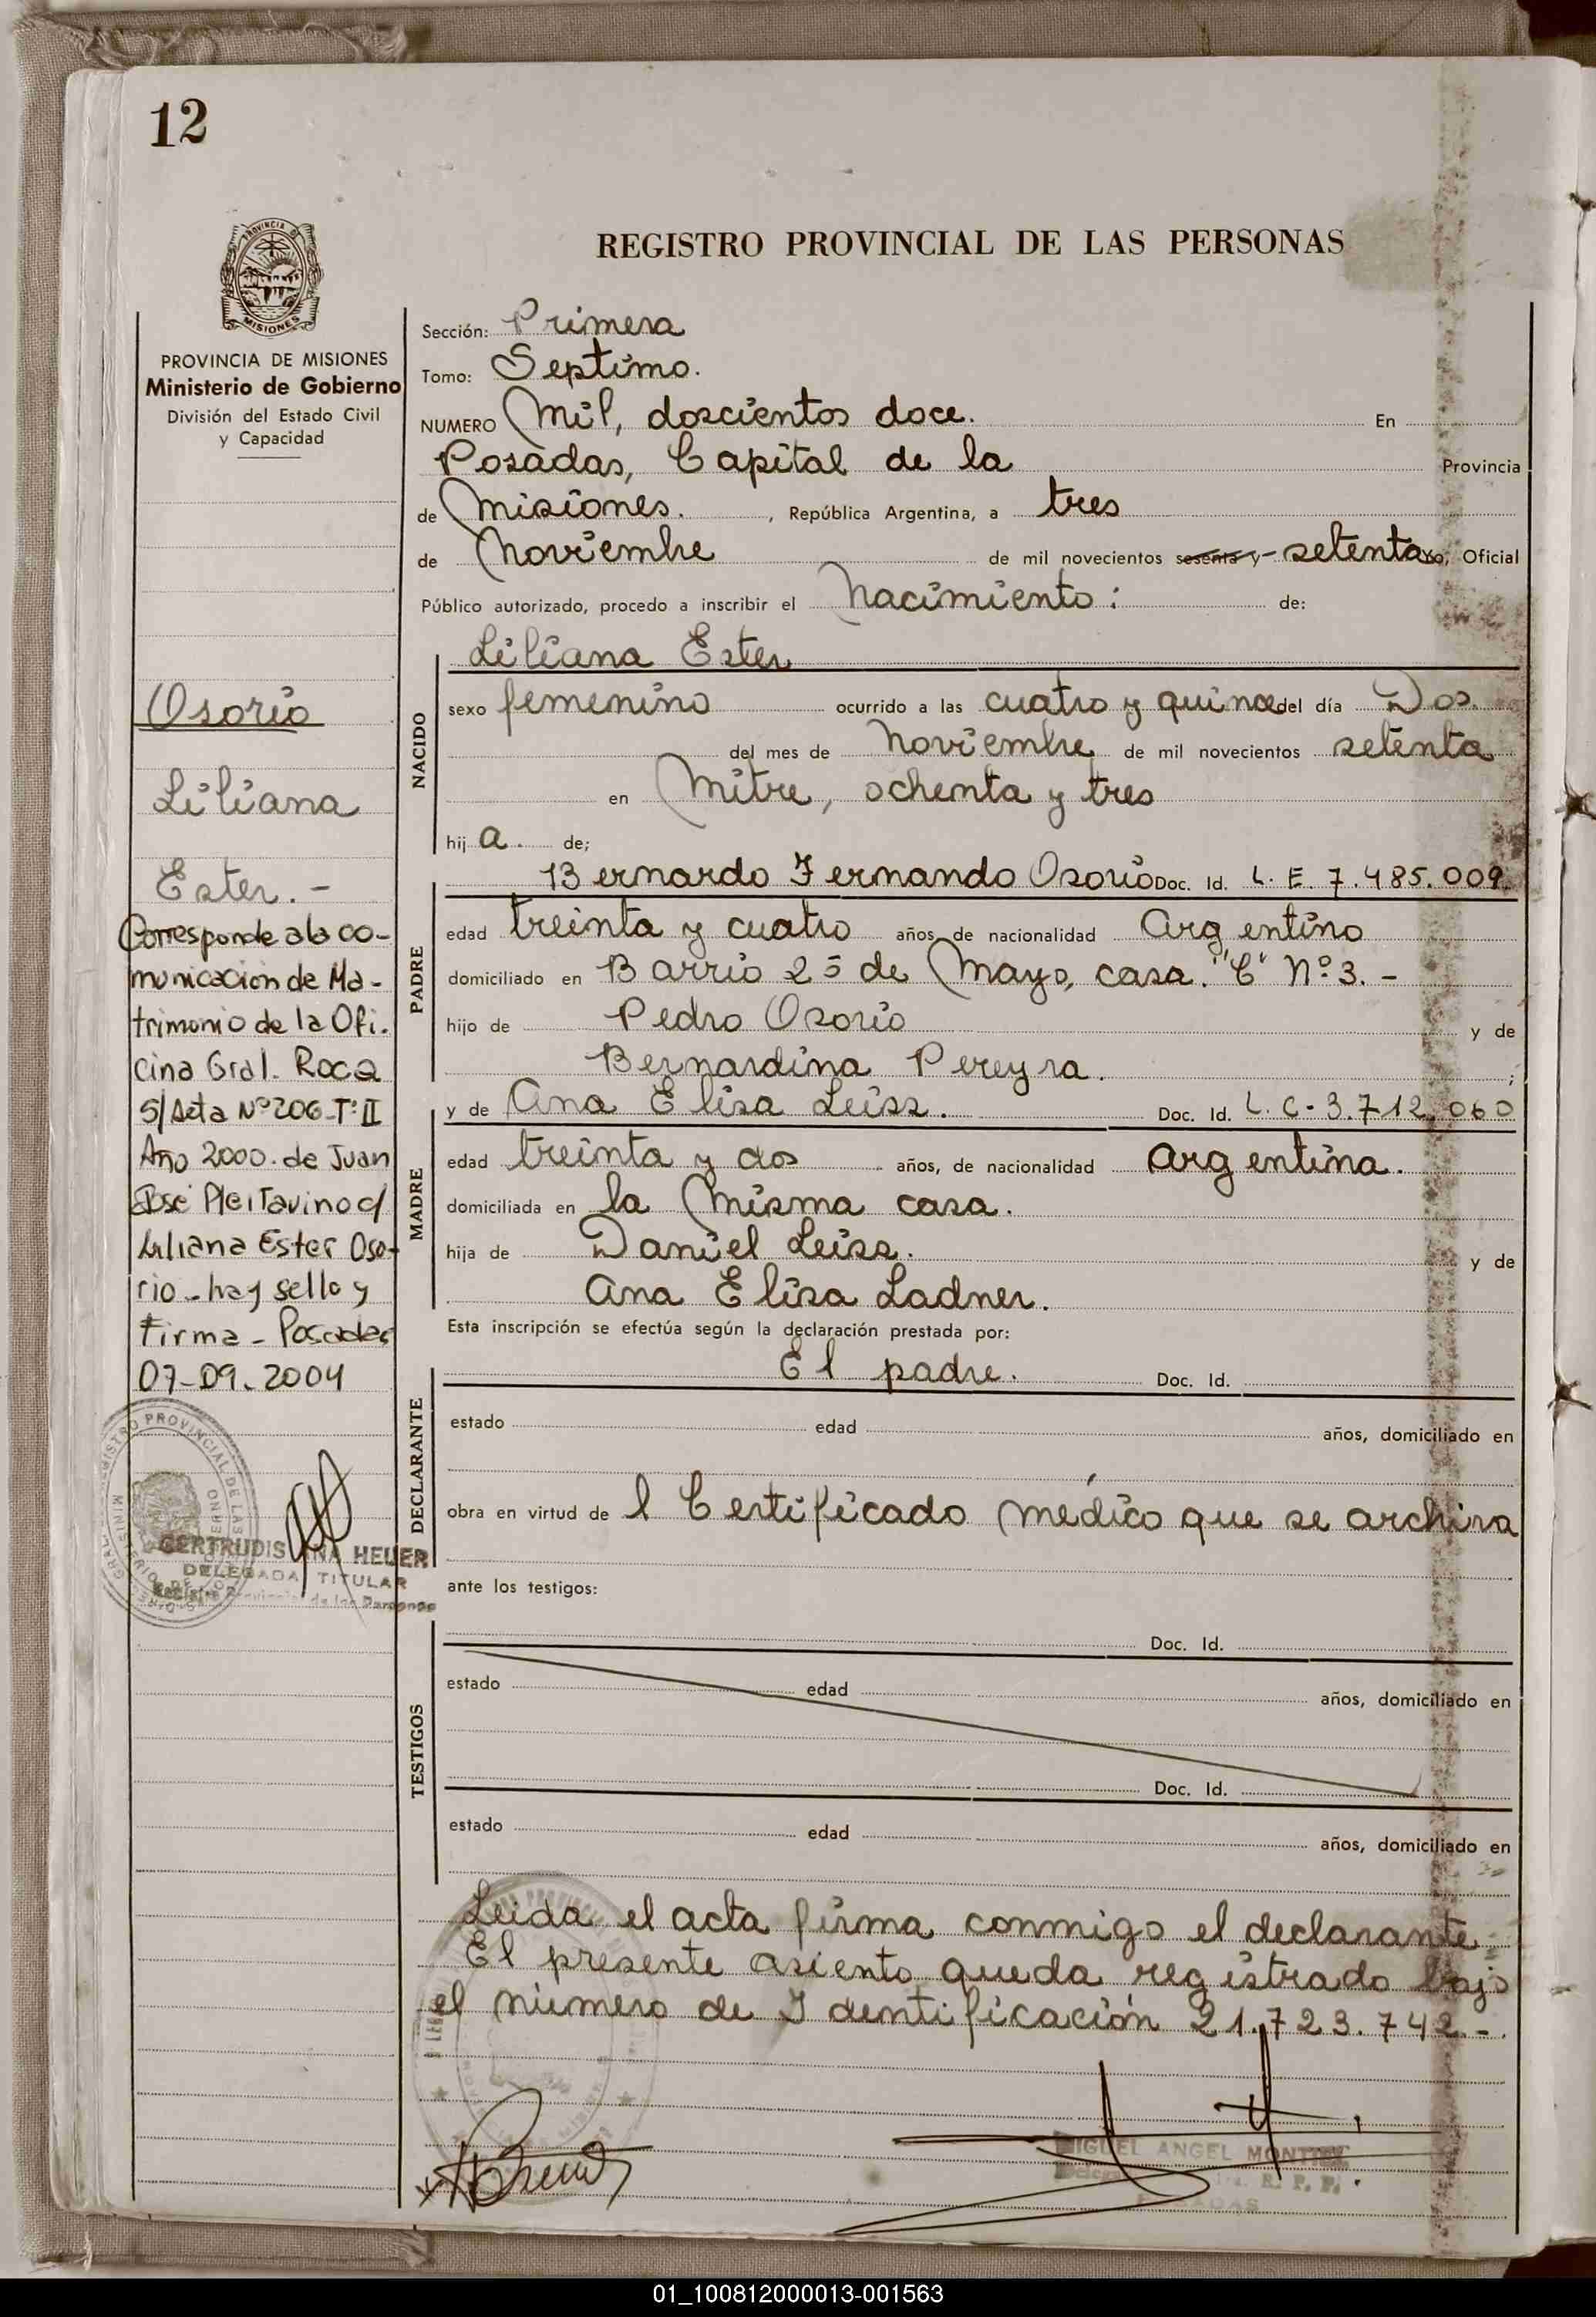 12
PROVINCIA DE
MISIONES
PROVINCIA DE MISIONES
Ministerio de Gobierno
División del Estado Civil
y Capacidad
REGISTRO PROVINCIAL DE LAS PERSONAS
Sección: Primera
Tomo: Septimo.
NUMERO Mil, doscientos doce. En
Posadas, Capital de la Provincia
de Misiones. , República Argentina, a tres
de Noviembre de mil novecientos sesenta y setenta yo, Oficial
Público autorizado, procedo a inscribir el Nacimiento: de:
Liliana Ester
NACIDO
sexo femenino ocurrido a las cuatro y quince del día Dos.
del mes de Noviembre de mil novecientos setenta
en Mitre, ochenta y tres
hij a. de;
Bernardo Fernando Osorio Doc. Id. L. E. 7.485.009.
PADRE
edad treinta y cuatro años, de nacionalidad Argentino
domiciliado en Barrio 25 de Mayo, casa. "C" Nº 3. -
hijo de Pedro Osorio y de
Bernardina Pereyra. ;
y de Ana Elisa Leisz. Doc. Id. L. C. 3.712.060
MADRE
edad treinta y dos años, de nacionalidad Argentina.
domiciliada en la Misma casa.
hija de Daniel Leisz. y de
Ana Elisa Ladner.
Esta inscripción se efectúa según la declaración prestada por:
El padre. Doc. Id.
DECLARANTE
estado edad años, domiciliado en
obra en virtud de l Certificado médico que se archiva
ante los testigos:
Doc. Id.
TESTIGOS
estado edad años, domiciliado en
Doc. Id.
estado edad años, domiciliado en
Leida el acta firma conmigo el declarante.
El presente asiento queda registrado bajo
el número de Identificación 21.723.742.-
MIGUEL ANGEL MONTIEL
R. P. P.
POSADAS
Osorio
Liliana
Ester. -
Corresponde a la co-
municacion de Ma-
trimonio de la Ofi.
cina Gral. Roca
S/Acta Nº 206-Tº II
Año 2000. de Juan
José Pleitavino c/
Liliana Ester Oso-
rio - hay sello y
Firma - Posadas
07-09-2004
REGISTRO PROVINCIAL DE LAS
GERTRUDIS ANA HEUER
DELEGADA TITULAR
Registro Provincial de las Personas
01_100812000013-001563